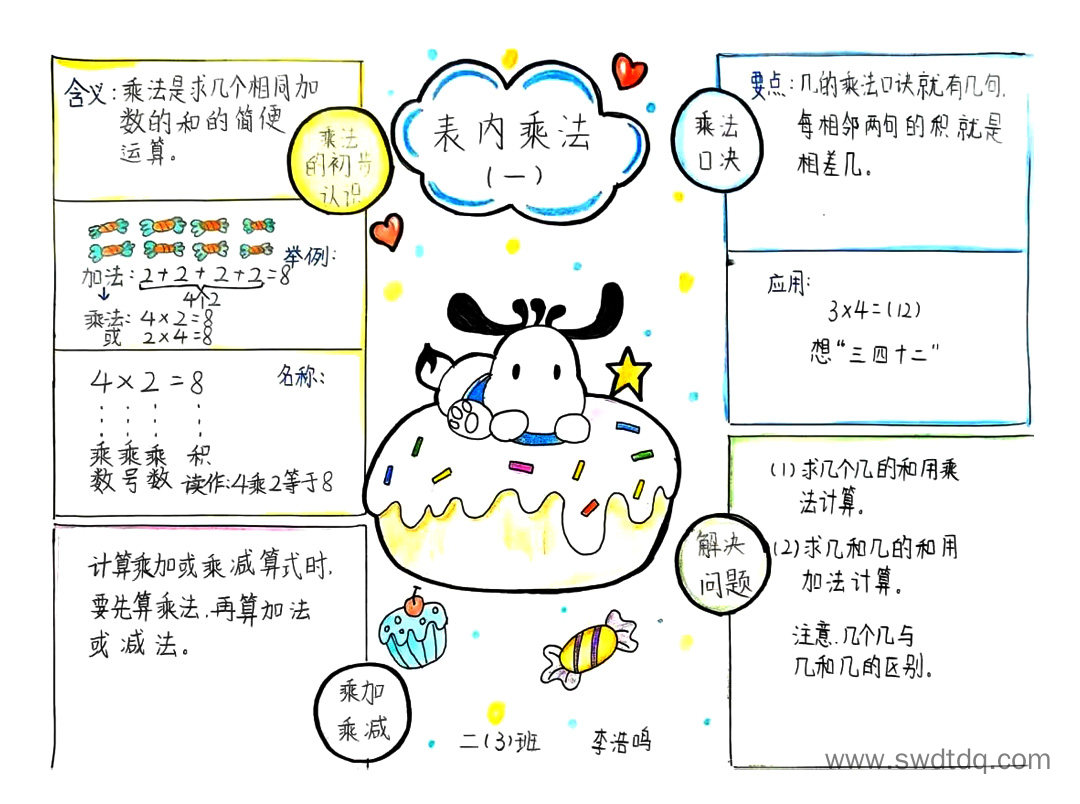 表内乘法
(一)
乘法
的初步
认识
含义：乘法是求几个相同加
数的和的简便
运算。
举例：
加法：2+2+2+2=8
4个2
乘法：4×2=8
或 2×4=8
名称：
4×2=8
乘 乘 乘 积
数 号 数 读作：4乘2等于8
计算乘加或乘减算式时，
要先算乘法，再算加法
或减法。
乘加
乘减
乘法
口决
要点：几的乘法口诀就有几句，
每相邻两句的积就是
相差几。
应用：
3×4=(12)
想“三四十二”
解决
问题
(1)求几个几的和用乘
法计算。
(2)求几和几的和用
加法计算。
注意，几个几与
几和几的区别。
二(3)班 李浩鸣
www.swdtdq.com